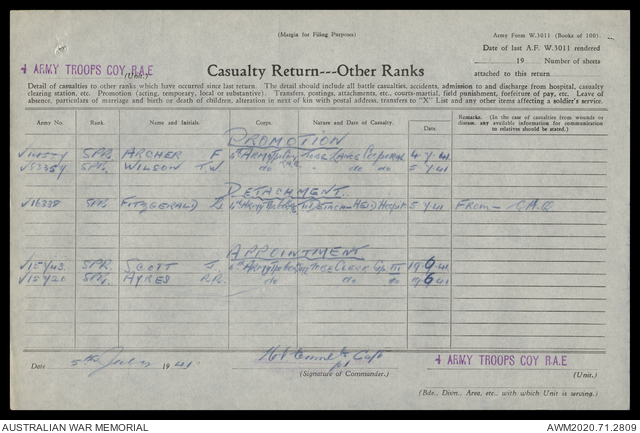 (Margin for Filing Purposes)
Army Form W.3011 (Books of 100).
Date of last A.F. W.3011 rendered
19 Number of sheets
attached to this return
4 ARMY TROOPS COY R.A.E
(Unit.)
Casualty Return---Other Ranks
Detail of casualties to other ranks which have occurred since last return. The detail should include all battle casualties, accidents, admission to and discharge from hospital, casualty
clearing station, etc. Promotion (acting, temporary, local or substantive). Transfers, postings, attachments, etc., courts-martial, field punishment, forfeiture of pay, etc. Leave of
absence, particulars of marriage and birth or death of children, alteration in next of kin with postal address, transfers to "X" List and any other items affecting a soldier's service.
Army No. Rank. Name and Initials. Corps. Nature and Date of Casualty. Date. Remarks. (In the case of casualties from wounds or disease, any available information for communication to relatives should be stated.)
PROMOTION
SPR. ARCHER F To be Lance Corporal 4 7 41
SPR. WILSON T.W do do 5 7 41
DETACHMENT
V16238 SPR FITZGERALD 5 7 41 From
APPOINTMENT
V15743 SPR. SCOTT J. To be Clerk Gp III 19 6 41
V15720 SPR. AYRES R.R. do do 19 6 41
Date 5th July 1941. Capt
(Signature of Commander.)
4 ARMY TROOPS COY R.A.E
(Unit.)
(Bde., Divn., Area, etc., with which Unit is serving.)
AUSTRALIAN WAR MEMORIAL AWM2020.71.2809